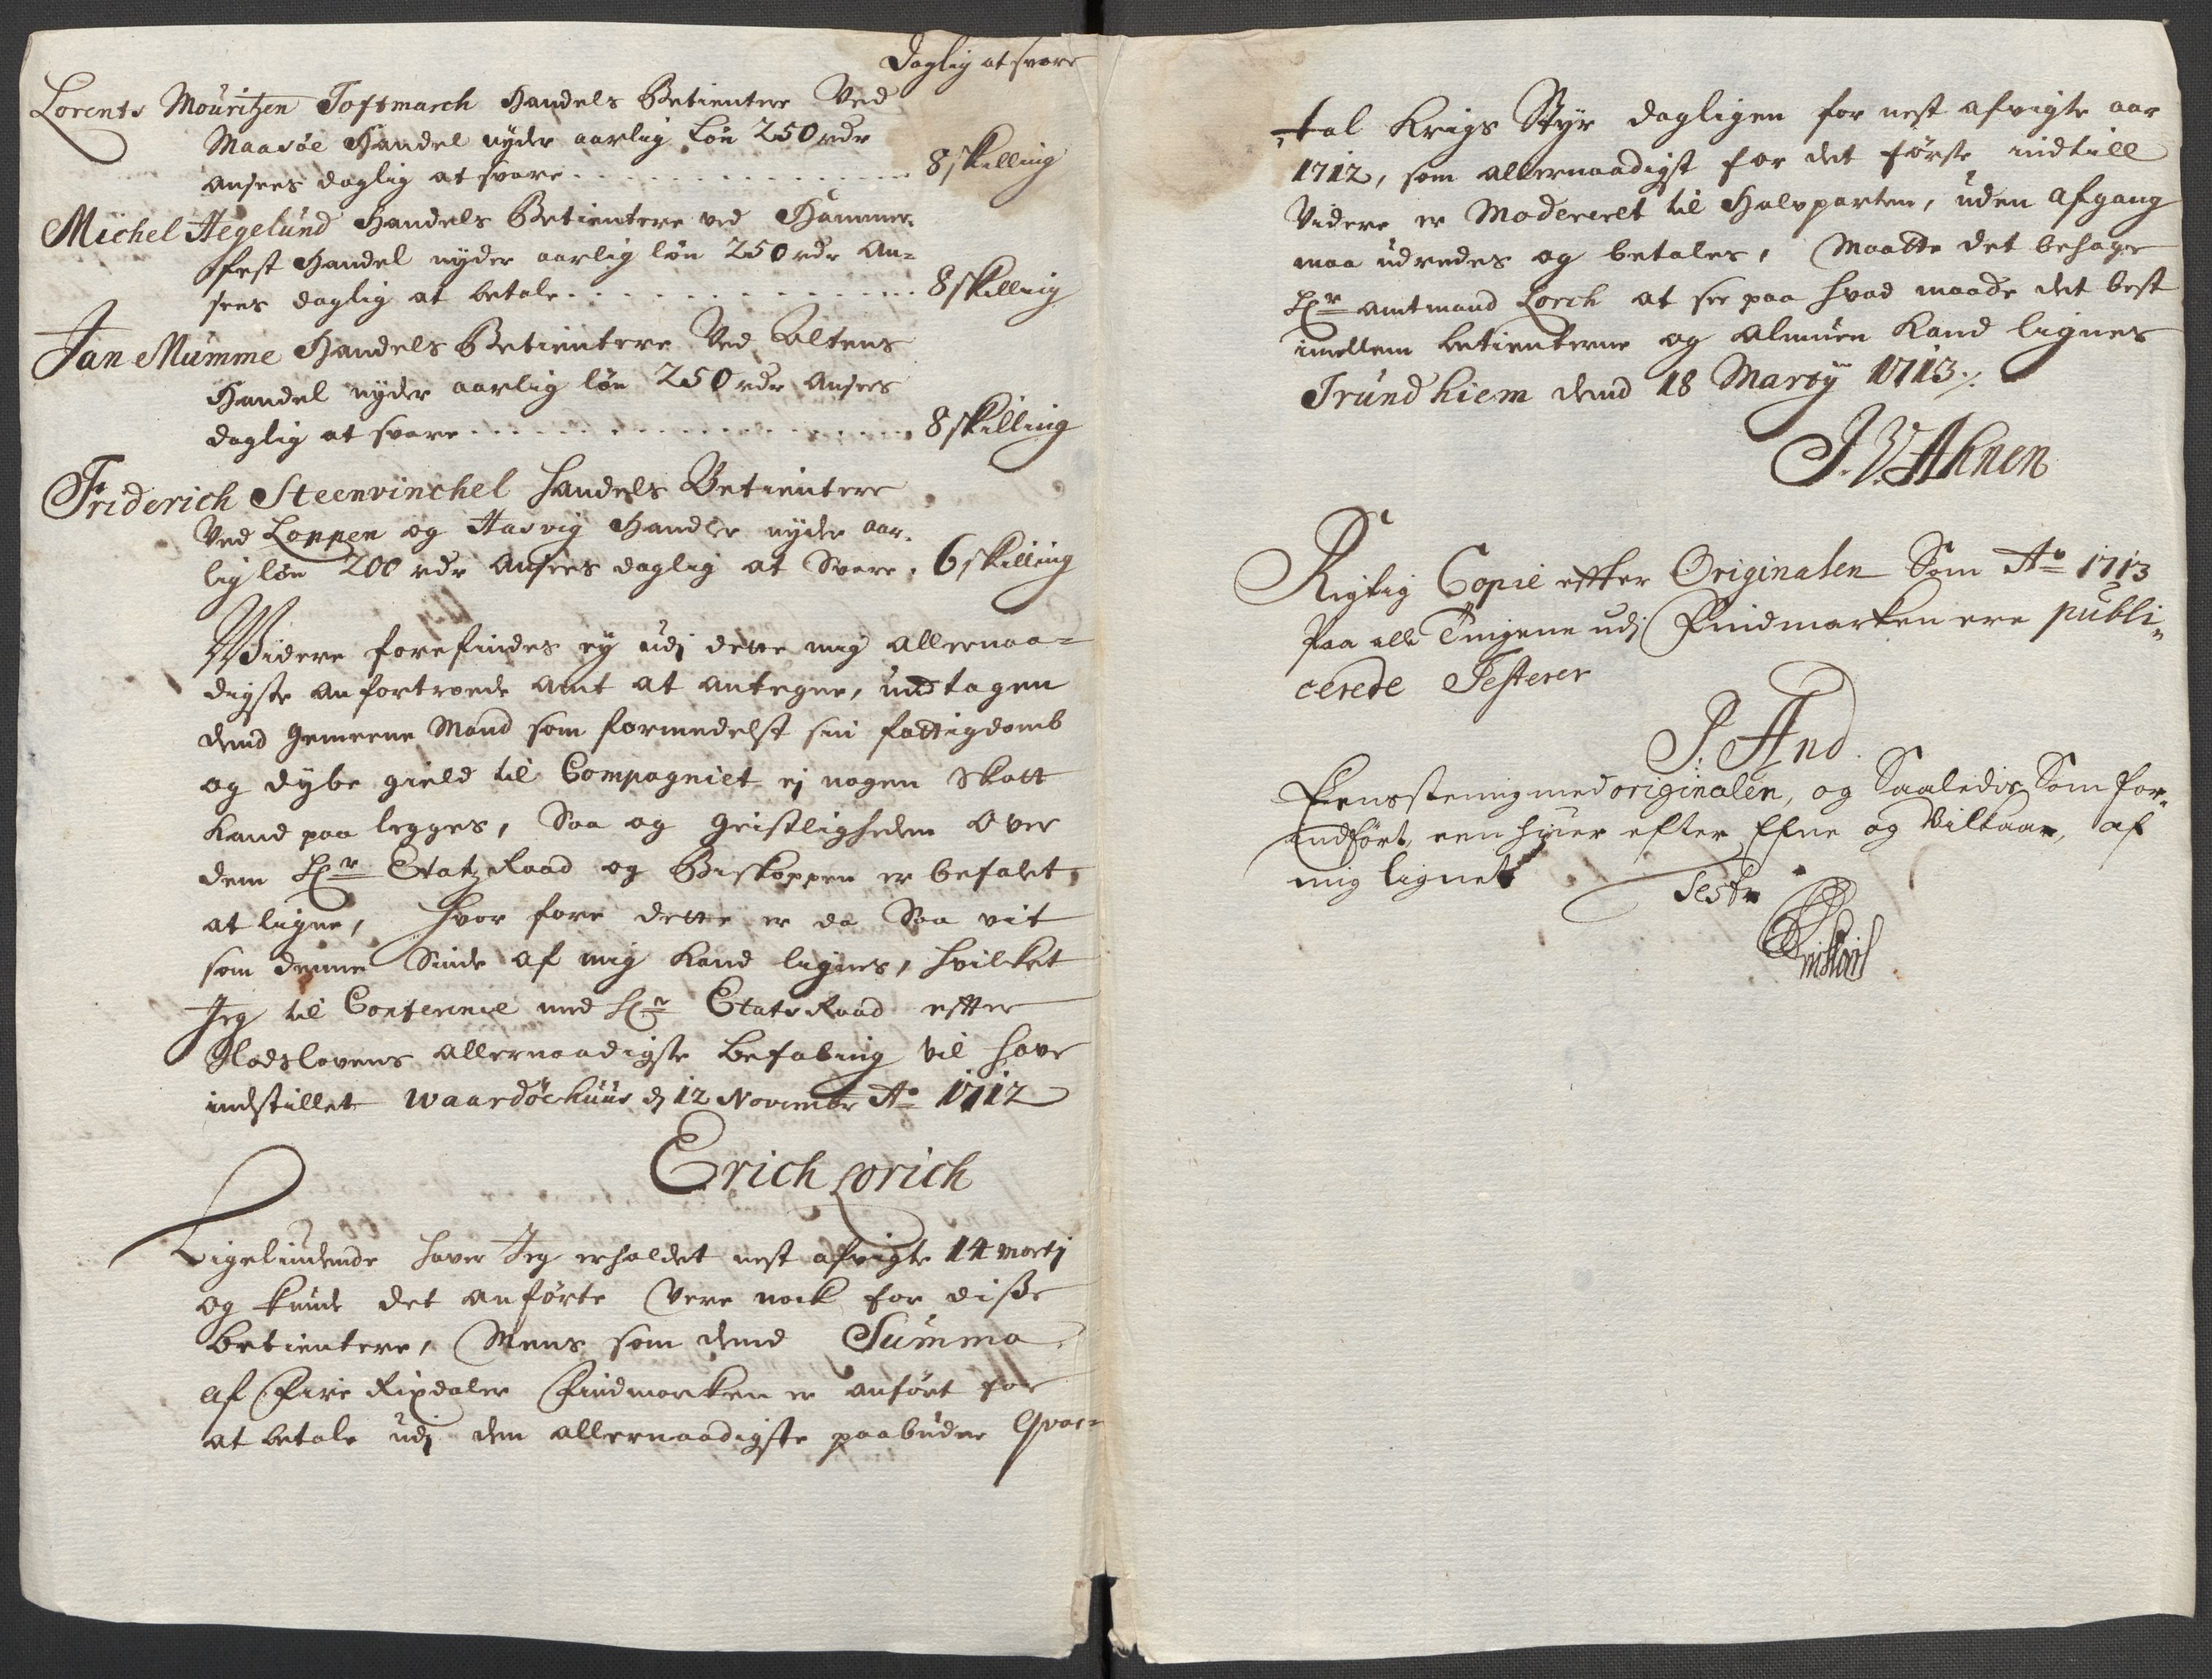 Daglig at svare
Lorents Mouritzen Toftmarch Handels Betientere Ved
Maasöe Handel nyder aarlig løn 250 rdr
ansees daglig at svare . . . . . . . . . . 8 skilling
Michel Hegelund Handels Betientere ved Hammer-
fest Handel nyder aarlig løn 250 rdr An=
sees daglig at betale . . . . . . . . . . 8 skilling
Jan Mumme Handels Betientere Ved Altens
Handel nyder aarlig løn 250 rdr Ansees
daglig at svare . . . . . . . . . . 8 skilling
Friderich Steenvinchel Handels Betientere
Ved Loppen og Hasvig Handler nyder aar-
lig løn 200 rdr Ansees daglig at Svare . 6 skilling
Widere forefindes ey udj dette mig allernaa=
digste anfortroede Amt at antegne, undtagen
dend Gemeene Mand som formedelst sin fattigdomb
og dybe gield til Compagniet ej nogen Skatt
kand paa legges, Saa og Geistligheden over
dem Hr Etatz Raad og Biskoppen er befalet
at ligne, hvor fore dette er da Saa vit
som denne Sinde af mig kand lignes, hvilket
Jeg til Conferince med Hr Etats Raad efter
Slodslovens allernaadigste befaling vil have
indstillet Waardöehuus d 12 Novembr Ao 1712
Erich Lorich
Ligeliudende haver Jeg erholdet nest afvigte 14 Martj
og kunde det anførte Vere nock for disse
betientere, Mens som dend Summa
af Fire Rixdaler Findmarken er anført for
at betale udj den allernaadigste paabudne Qvar=
tal Krigs Styr dagligen for nest afvigte aar
1712, som allernaadigst for det første indtill
Videre er Modereret til Halvparten, uden afgang
maa udredes og betales, Maatte det behage
Hr Amtmand Lorch at see paa hvad maade det best
imellem betienterne og Almuen kand lignes
Trundhiem dend 18 Martij 1713 ./.
J. V. Ahnen
Rigtig Copie effter Originalen Som Ao 1713
paa alle Tingene udj Findmarken ere publi-
cerede Testerer
P. And.
Eensstemig med originalen, og Saaledis Som for-
indført een hver efter Efne og Vilkaar, af
mig lignet
Test